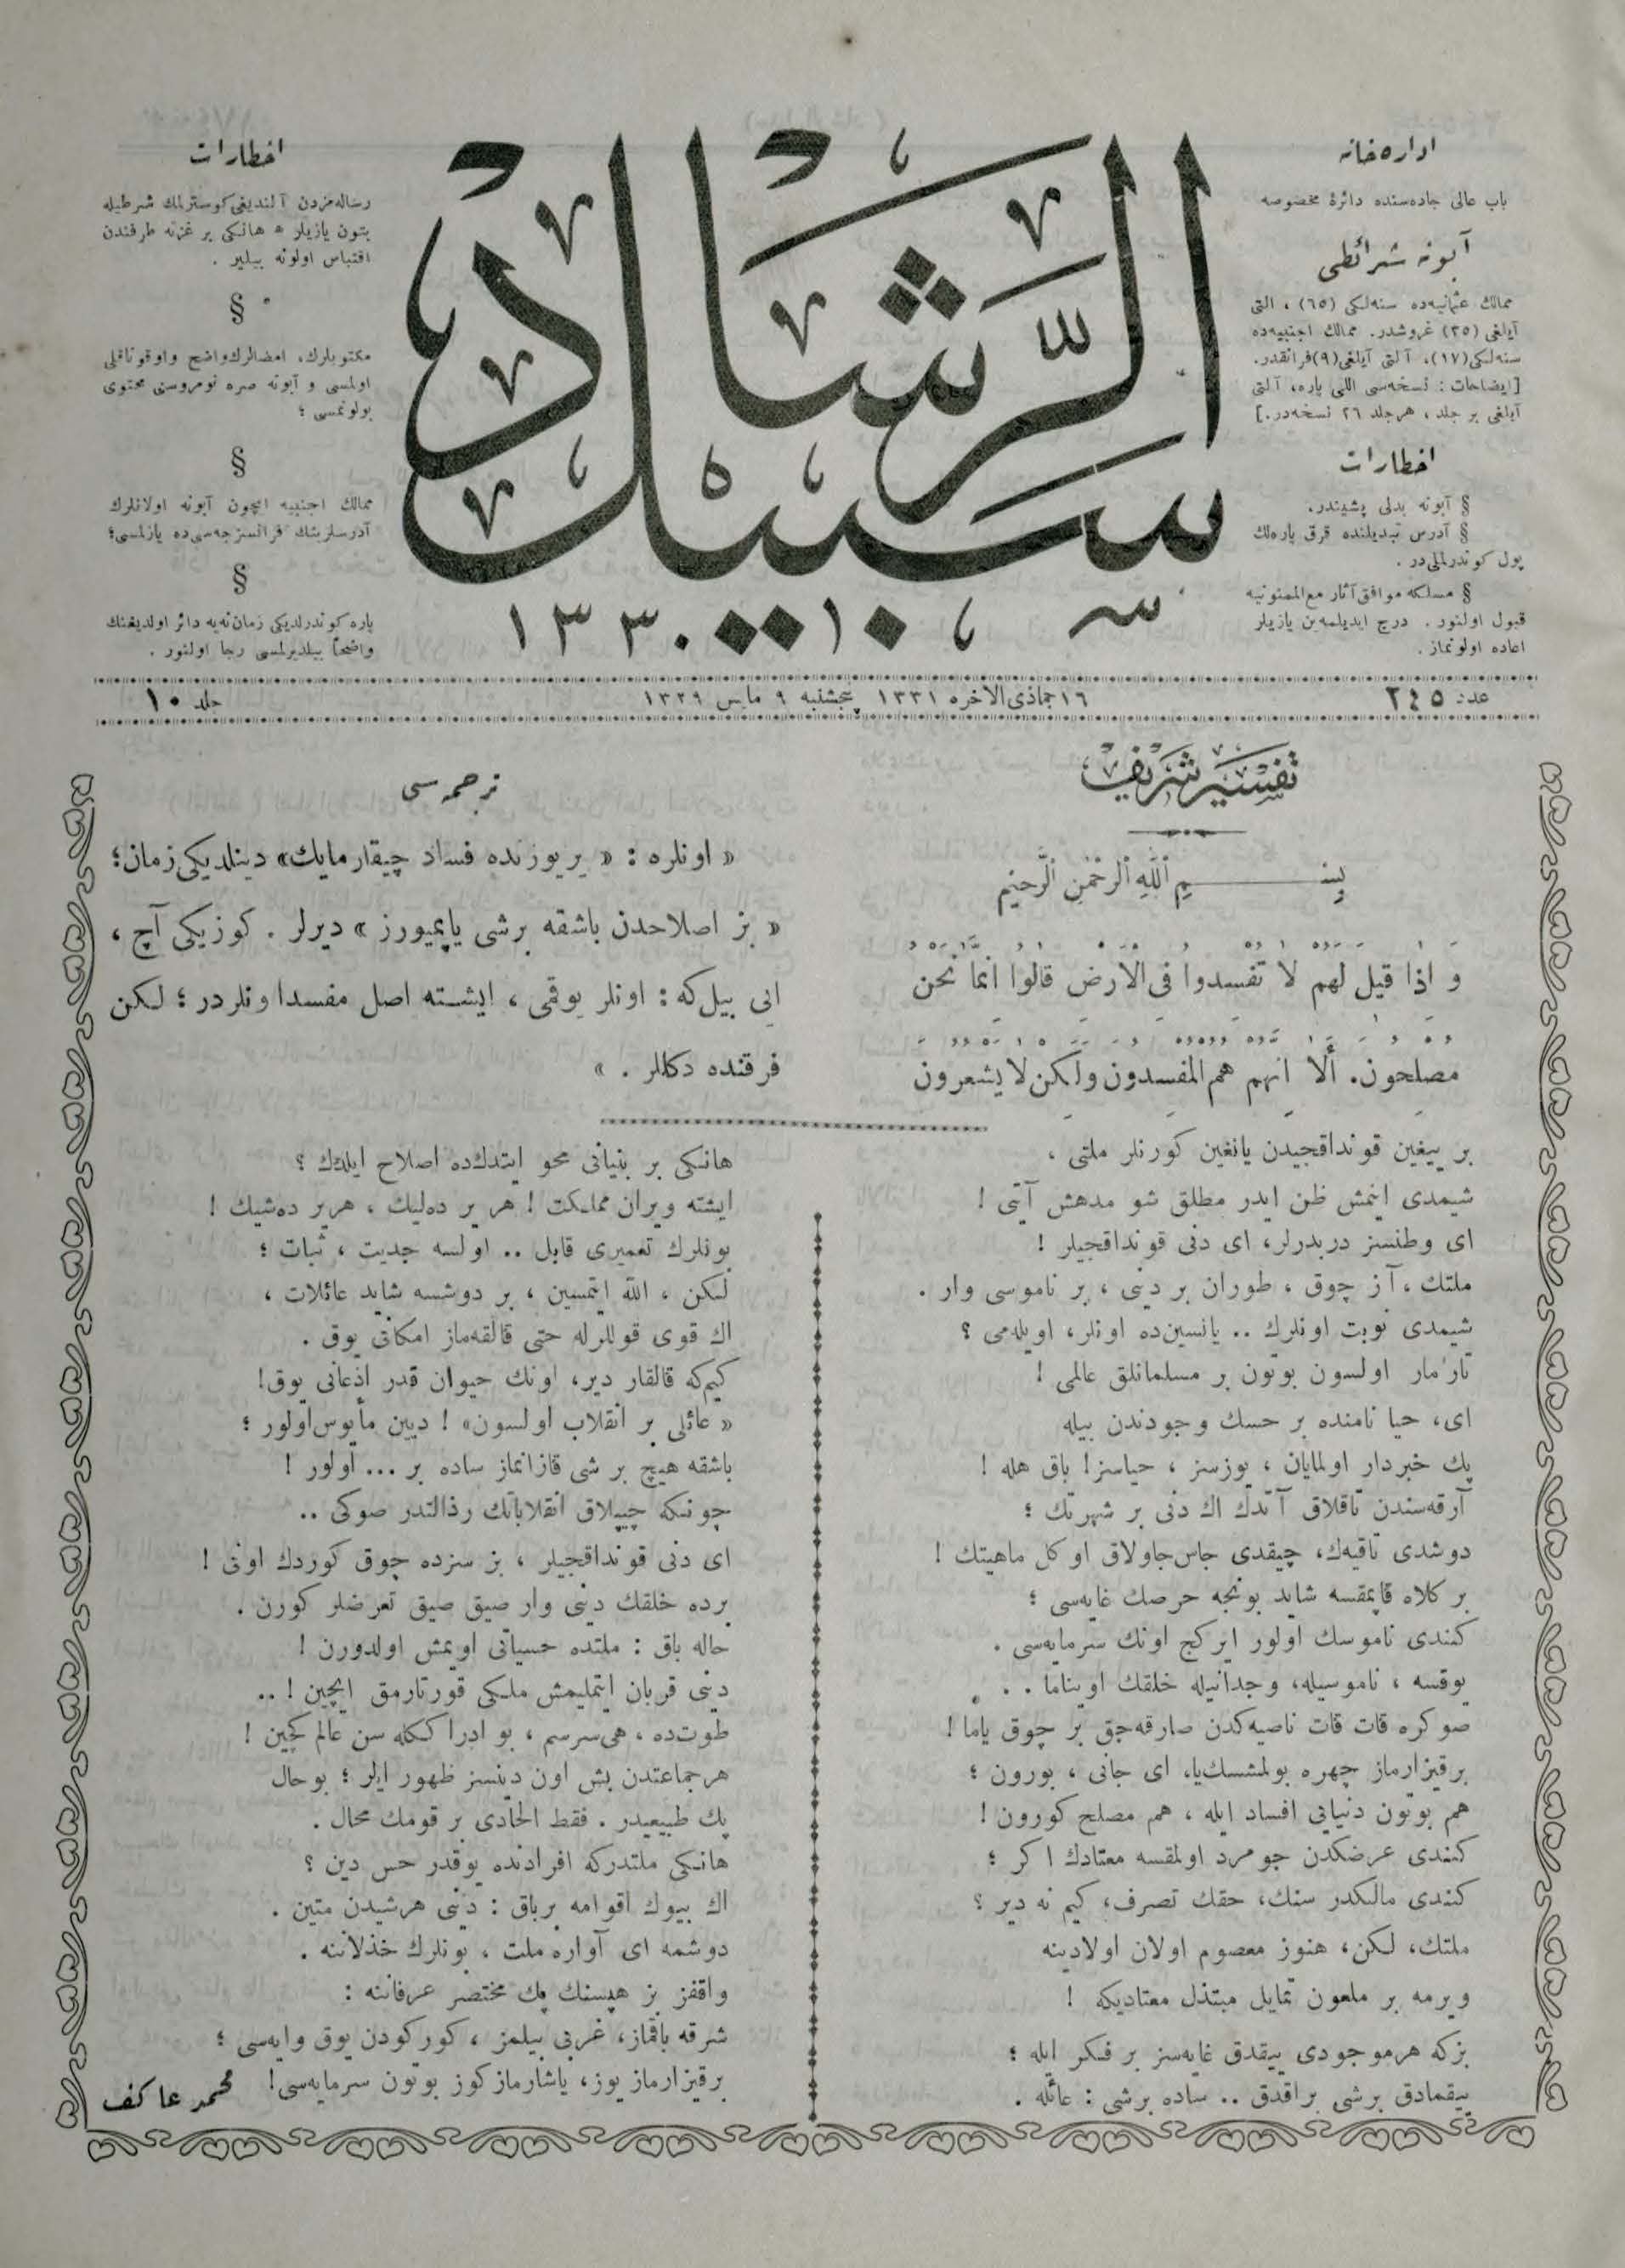 اداره‌خانه
باب عالی جاده‌سنده دائرهٔ مخصوصه
آبونه شرائطی
ممالك عثمانیه‌ده سنه‌لكی (٦٥) ، التی
آیلغی (٣٥) غروشدر. ممالك اجنبیه‌ده
سنه‌لكی (١٧)، آلتی آیلغی (٩) فرانقدر.
[ایضاحات : نسخه‌سی اللی پاره، آلتی
آیلغی بر جلد ، هر جلد ٢٦ نسخه‌در.]
اخطارات
§ آبونه بدلی پشیندر.
§ آدرس تبدیلنده قرق پاره‌لك
پول كوندرلملی‌در .
§ مسلكه موافق آثار مع‌الممنونیه
قبول اولنور . درج ایدیلمه‌ین یازیلر
اعاده اولونماز .
سبیل الرشاد
١٣٣٠
اخطارات
رساله‌مزدن آلندیغی كوسترلمك شرطیله
بتون یازیلر هانكی بر غزته طرفندن
اقتباس اولونه بیلیر .
§
مكتوبلرك، امضالرك واضح واوقوناقلی
اولمسی و آبونه صره نومروسنی محتوی
بولونمسی ؛
§
ممالك اجنبیه ایچون آبونه اولانلرك
آدرسلرینك فرانسزجه‌سی‌ده یازلمسی؛
§
پاره كوندرلدیكی زمان نه‌یه دائر اولدیغنك
واضحاً بیلدیرلمسی رجا اولنور .
عدد ٢٤٥
١٦ جماذی‌الآخره ١٣٣١ پنجشنبه ٩ مایس ١٣٢٩
جلد ١٠
تفسیر شریف
بسم الله الرحمن الرحیم
و اذا قیل لهم لا تفسدوا فی الارض قالوا انما نحن
مصلحون. ألا انهم هم المفسدون ولكن لا یشعرون
ترجمه‌سی
« اونلره : « یریوزنده فساد چیقارمایك» دینلدیكی زمان؛
« بز اصلاحدن باشقه برشی یاپمیورز » دیرلر . كوزیكی آچ ،
ایی بیل كه : اونلر یوقمی ، ایشته اصل مفسد اونلردر ؛ لكن
فرقنده دكللر . »
بر ییغین قونداقجیدن یانغین كورنلر ملتی ،
شیمدی اینمش ظن ایدر مطلق شو مدهش آیتی !
ای وطنسز دربدرلر، ای دنی قونداقجیلر !
ملتك ، آز چوق ، طوران بر دینی ، بر ناموسی وار .
شیمدی نوبت اونلرك .. یانسین‌ده اونلر، اویله‌می ؟
تارمار اولسون بوتون بر مسلمانلق عالمی !
ای، حیا نامنده بر حسك وجودندن بیله
پك خبردار اولمایان ، یوزسز ، حیاسز! باق هله !
آرقه‌سندن تاقلاق آتدك اك دنی بر شهرتك ؛
دوشدی تاقیه‌ك، چیقدی جاس‌جاولاق او كل ماهیتك !
بر كلاه قاپمقسه شاید بونجه حرصك غایه‌سی ؛
كندی ناموسك اولور ایركج اونك سرمایه‌سی .
یوقسه ، ناموسیله، وجدانیله خلقك اویناما . .
صوكره قات قات ناصیه‌كدن صارقه‌جق بر چوق یاما !
برقیزارماز چهره بولمشسك‌یا، ای جانی ، بورون ؛
هم بوتون دنیایی افساد ایله ، هم مصلح كورون !
كندی عرضكدن جومرد اولمقسه معتادك اكر ؛
كندی مالكدر سنك، حقك تصرف، كیم نه دیر ؟
ملتك، لكن، هنوز معصوم اولان اولادینه
ویرمه بر ملعون تمایل مبتذل معتادیكه !
بزكه هرموجودی ییقدق غایه‌سز بر فكر ایله ؛
ییقمادق برشی براقدق .. ساده برشی : عائله .
هانكی بر بنیانی محو ایتدك‌ده اصلاح ایلدك ؟
ایشته ویران مملكت ! هر یر ده‌لیك ، هریر ده‌شیك !
بونلرك تعمیری قابل .. اولسه جدیت ، ثبات ؛
لكن ، الله ایتمسین ، بر دوشسه شاید عائلات ،
اك قوی قوللرله حتی قالقه‌ماز امكانی یوق .
كیم‌كه قالقار دیر، اونك حیوان قدر اذعانی یوق!
« عائلی بر انقلاب اولسون» ! دیین مأیوس اولور ؛
باشقه هیچ بر شی قازانماز ساده بر ... اولور !
چونكه چیپلاق انقلاباتك رذالتدر صوكی ..
ای دنی قونداقجیلر ، بز سزده چوق كوردك اونی !
برده خلقك دینی وار صیق صیق تعرضلر كورن .
حاله باق : ملتده حسیاتی اویمش اولدورن !
دینی قربان ایتملیمش ملكی قورتارمق ایچین !..
طوت‌ده ، هی سرسم ، بو ادراككله سن عالم كچین !
هر جماعتدن بش اون دینسز ظهور ایلر ؛ بو حال
پك طبیعیدر . فقط الحادی بر قومك محال .
هانكی ملتدركه افرادنده یوقدر حس دین ؟
اك بیوك اقوامه برباق : دینی هرشیدن متین .
دوشمه ای آواره ملت ، بونلرك خذلاننه .
واقفز بز هپسنك پك مختصر عرفاننه :
شرقه باقماز، غربی بیلمز ، كوركودن یوق وایه‌سی ؛
برقیزارماز یوز، یاشارماز كوز بوتون سرمایه‌سی!
محمد عاكف